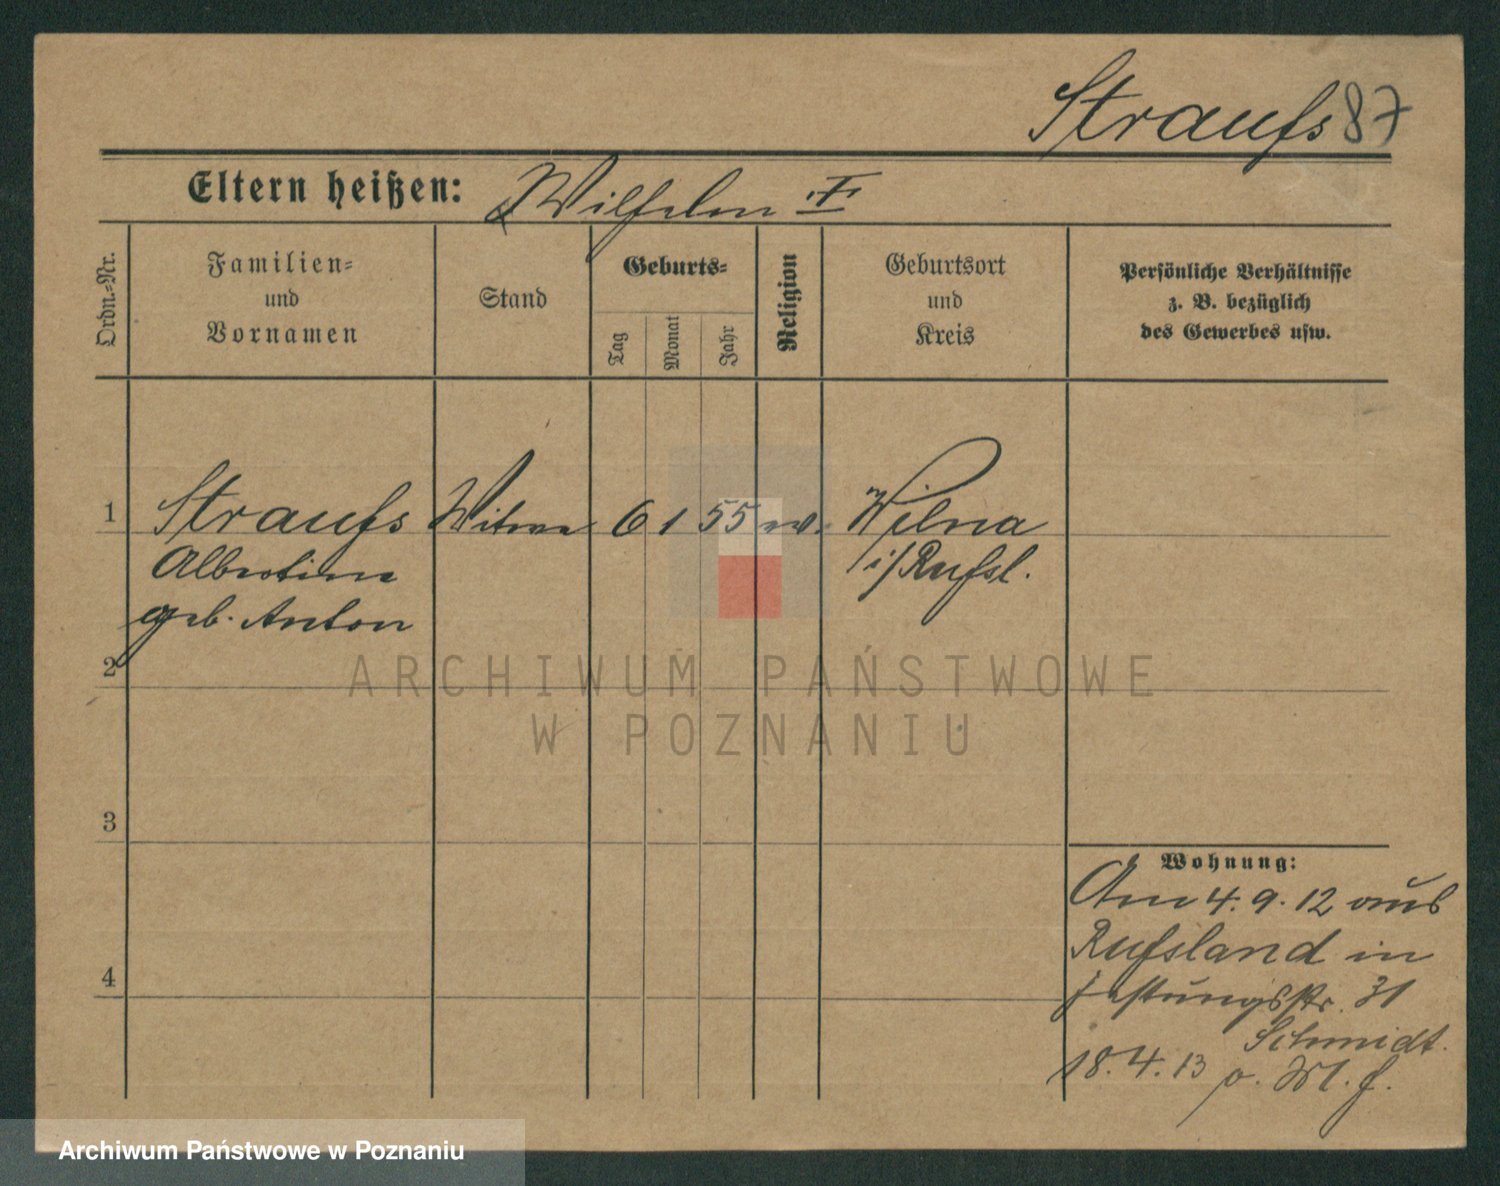 Straufs 87
Eltern heißen: Wilhelm
Ordn.-Nr.
Familien-
und
Vornamen
Stand
Geburts-
Tag
Monat
Jahr
Religion
Geburtsort
und
Kreis
Persönliche Verhältnisse
z. B. bezüglich
des Gewerbes usw.
1 Straufs Witwe 6 1 55 ev. Wilna
Albertine i/Rufsl.
geb. Anton
2
ARCHIWUM PAŃSTWOWE
W POZNANIU
3
Wohnung:
Am 4.9.12 aus
Rufsland in
4
Festungsstr. 31
Schmidt.
18.4.13
Archiwum Państwowe w Poznaniu